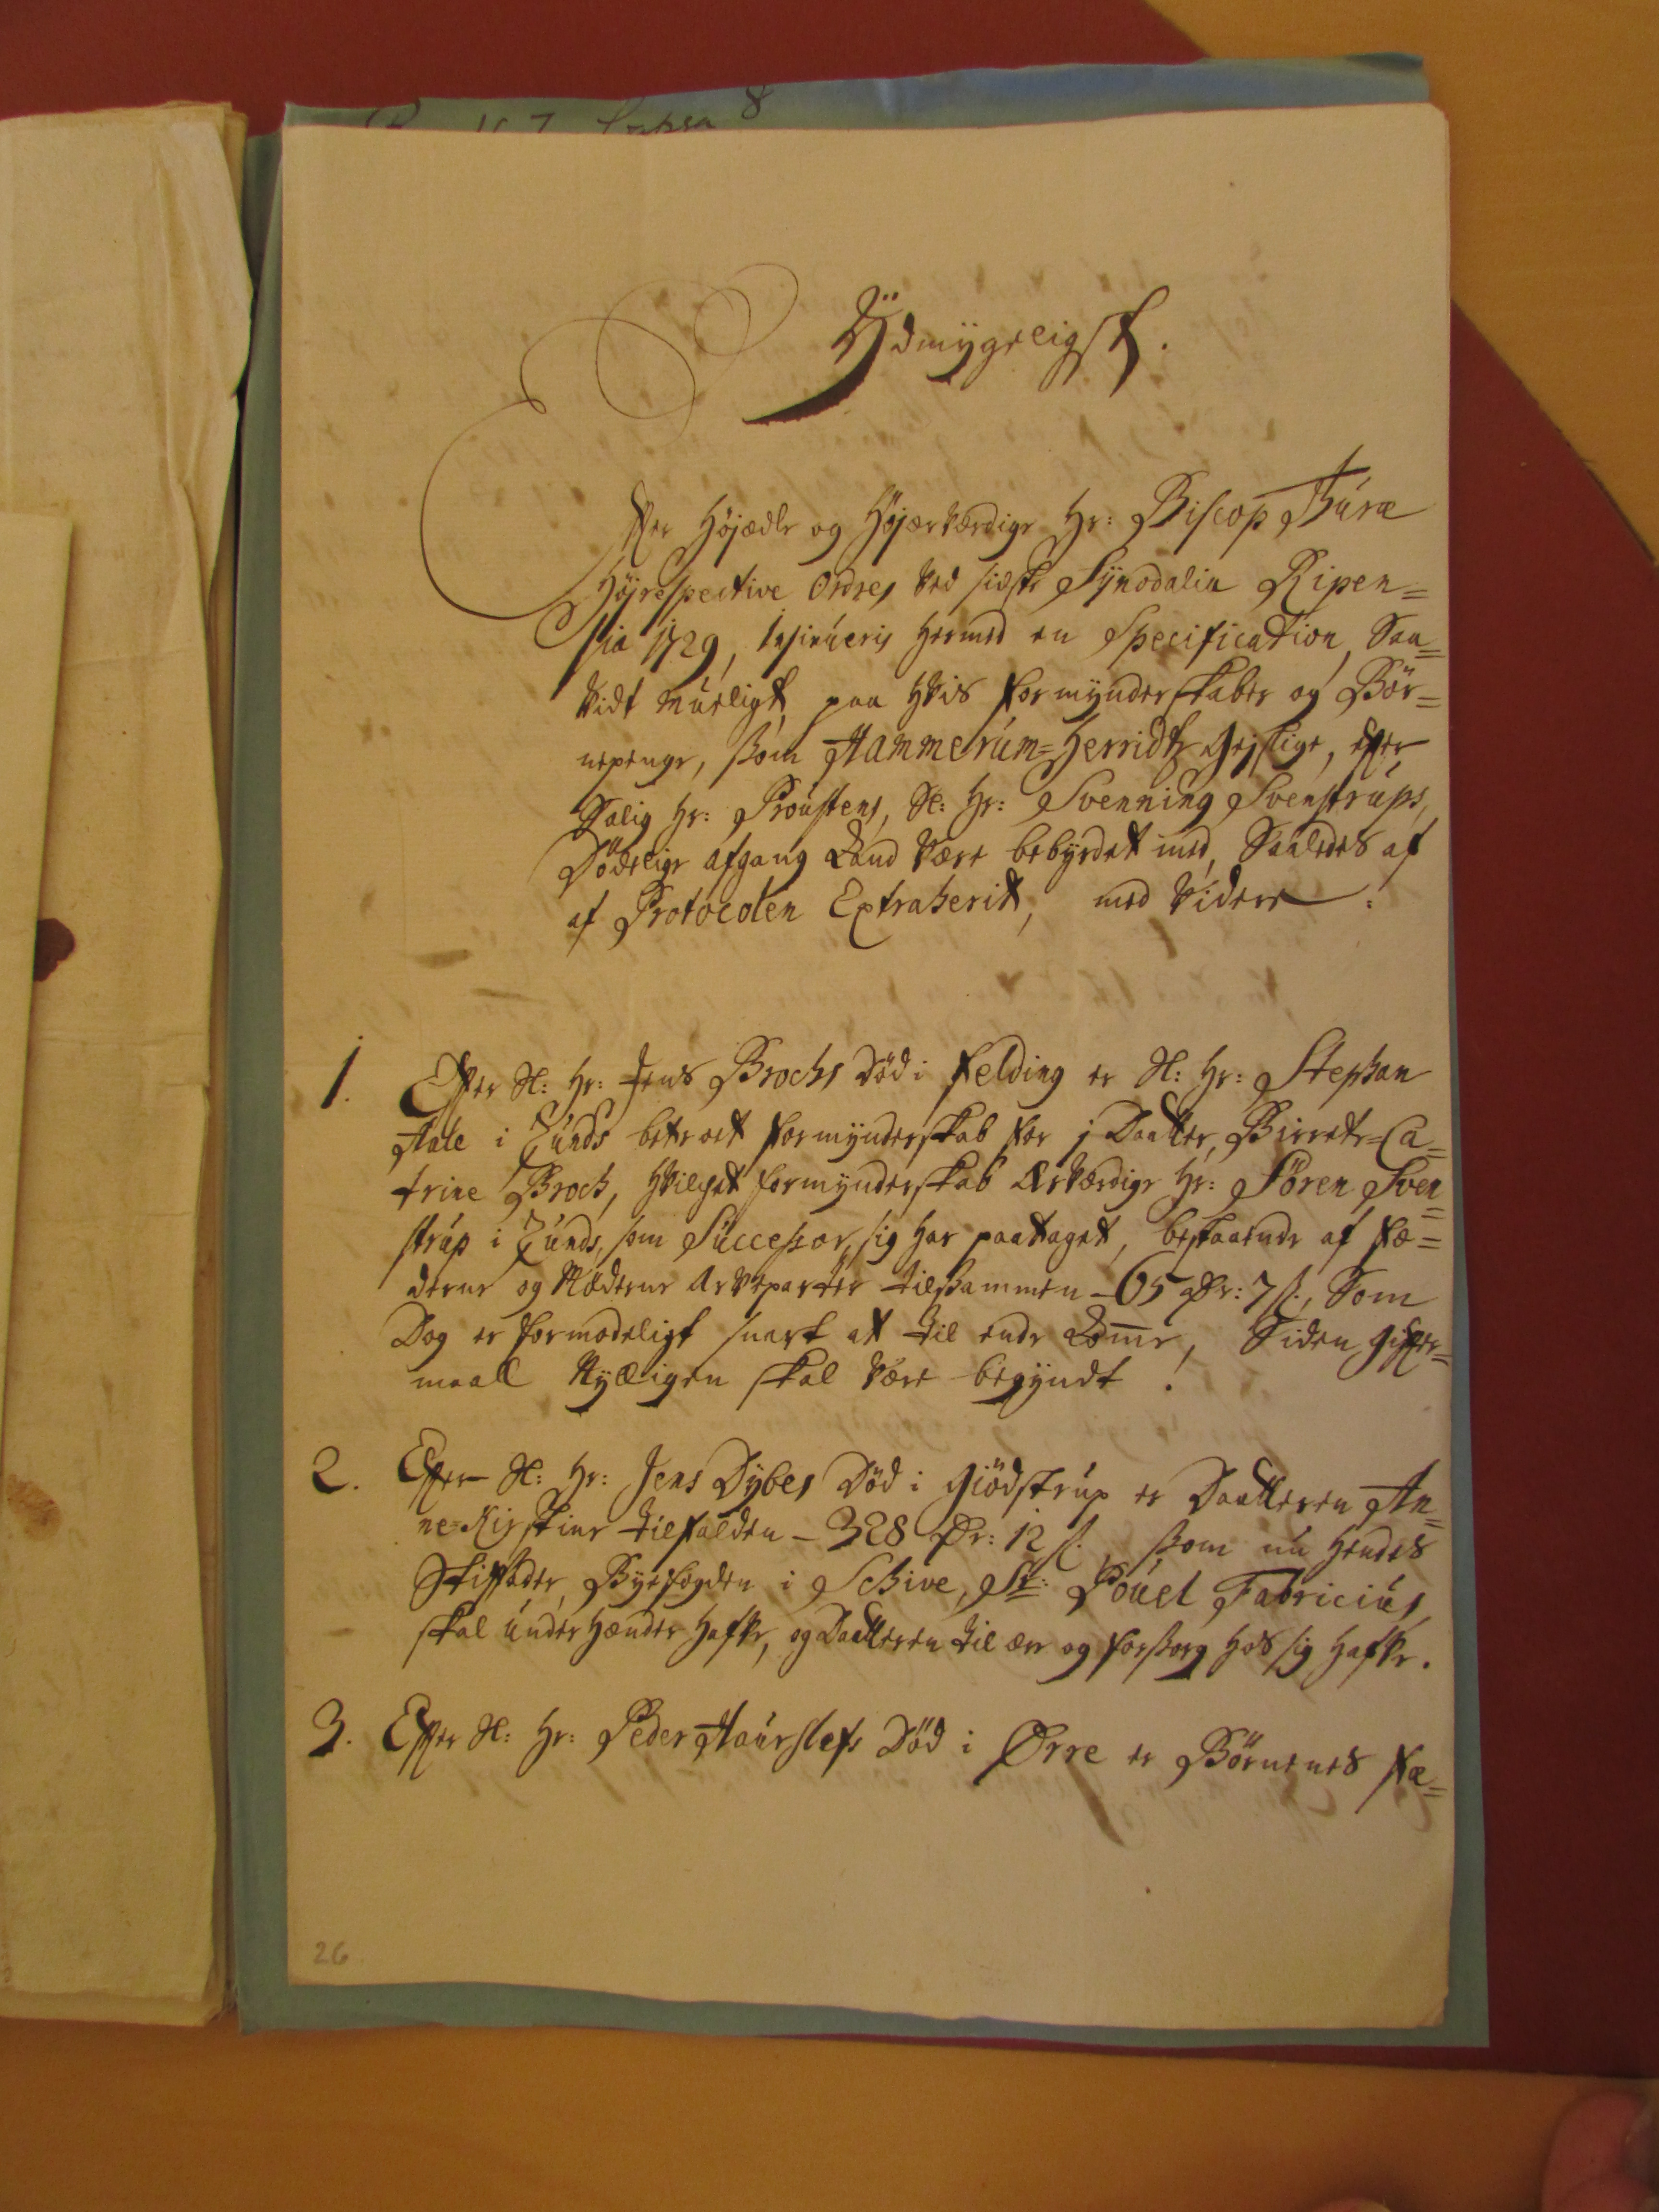 Ydmÿgeligst.
Effter Höjædle og Höjærværdige Hr: Biscop Thúræ
Höjrespective Ordres ved sidste Sÿnodalia Ripen=
sia 1729, insinúeris hermed en Specification, Saa=
vidt múeligt, paa hvis formÿnderskaber og Bör=
nepenge, som Hammerúm=Herridtz Gejstlige, effter
Salig Hr: Proústens, Sl: Hr: Svenning Svenstrúps,
Dödelige afgang kand være bebÿrdet med, Saaledes af
af Protocolen Extraherit, med videre:
1. Effter Sl: Hr: Jens Brochs död i Felding er Sl: Hr: Stephan
Hale i Súnds betroet formÿnderskab for j Daatter, Birrete=Ca=
trine Broch, hvilchet formÿnderskab ærværdige Hr: Sören Sven=
strúp i Súnds, som Súccessor, sig har paataget, bestaaende af fæ=
derne og Möderne Arveparter tilsammen - 65 Dr: 7 s., Som
Dog er formodeligt snart at til ende kom̅e, Siden giffter=
maall Nÿeligen skal være begÿndt.
2. Effter Sl: Hr: Jens Dÿbes död i Giödstrúp er Daatteren An=
ne=Kirstine tilfalden - 328 Dr: 12 s. som nú hendes
Stiffader, Bÿefogden i Schive, Sr: Poúel Fabriciús,
skal únder hænder hafve, og Daatteren til ære og forsorg hos sig hafve.
3. Effter Sl: Hr: Peder Haúrslefs död i Ørre er Börnenes fæ=
26